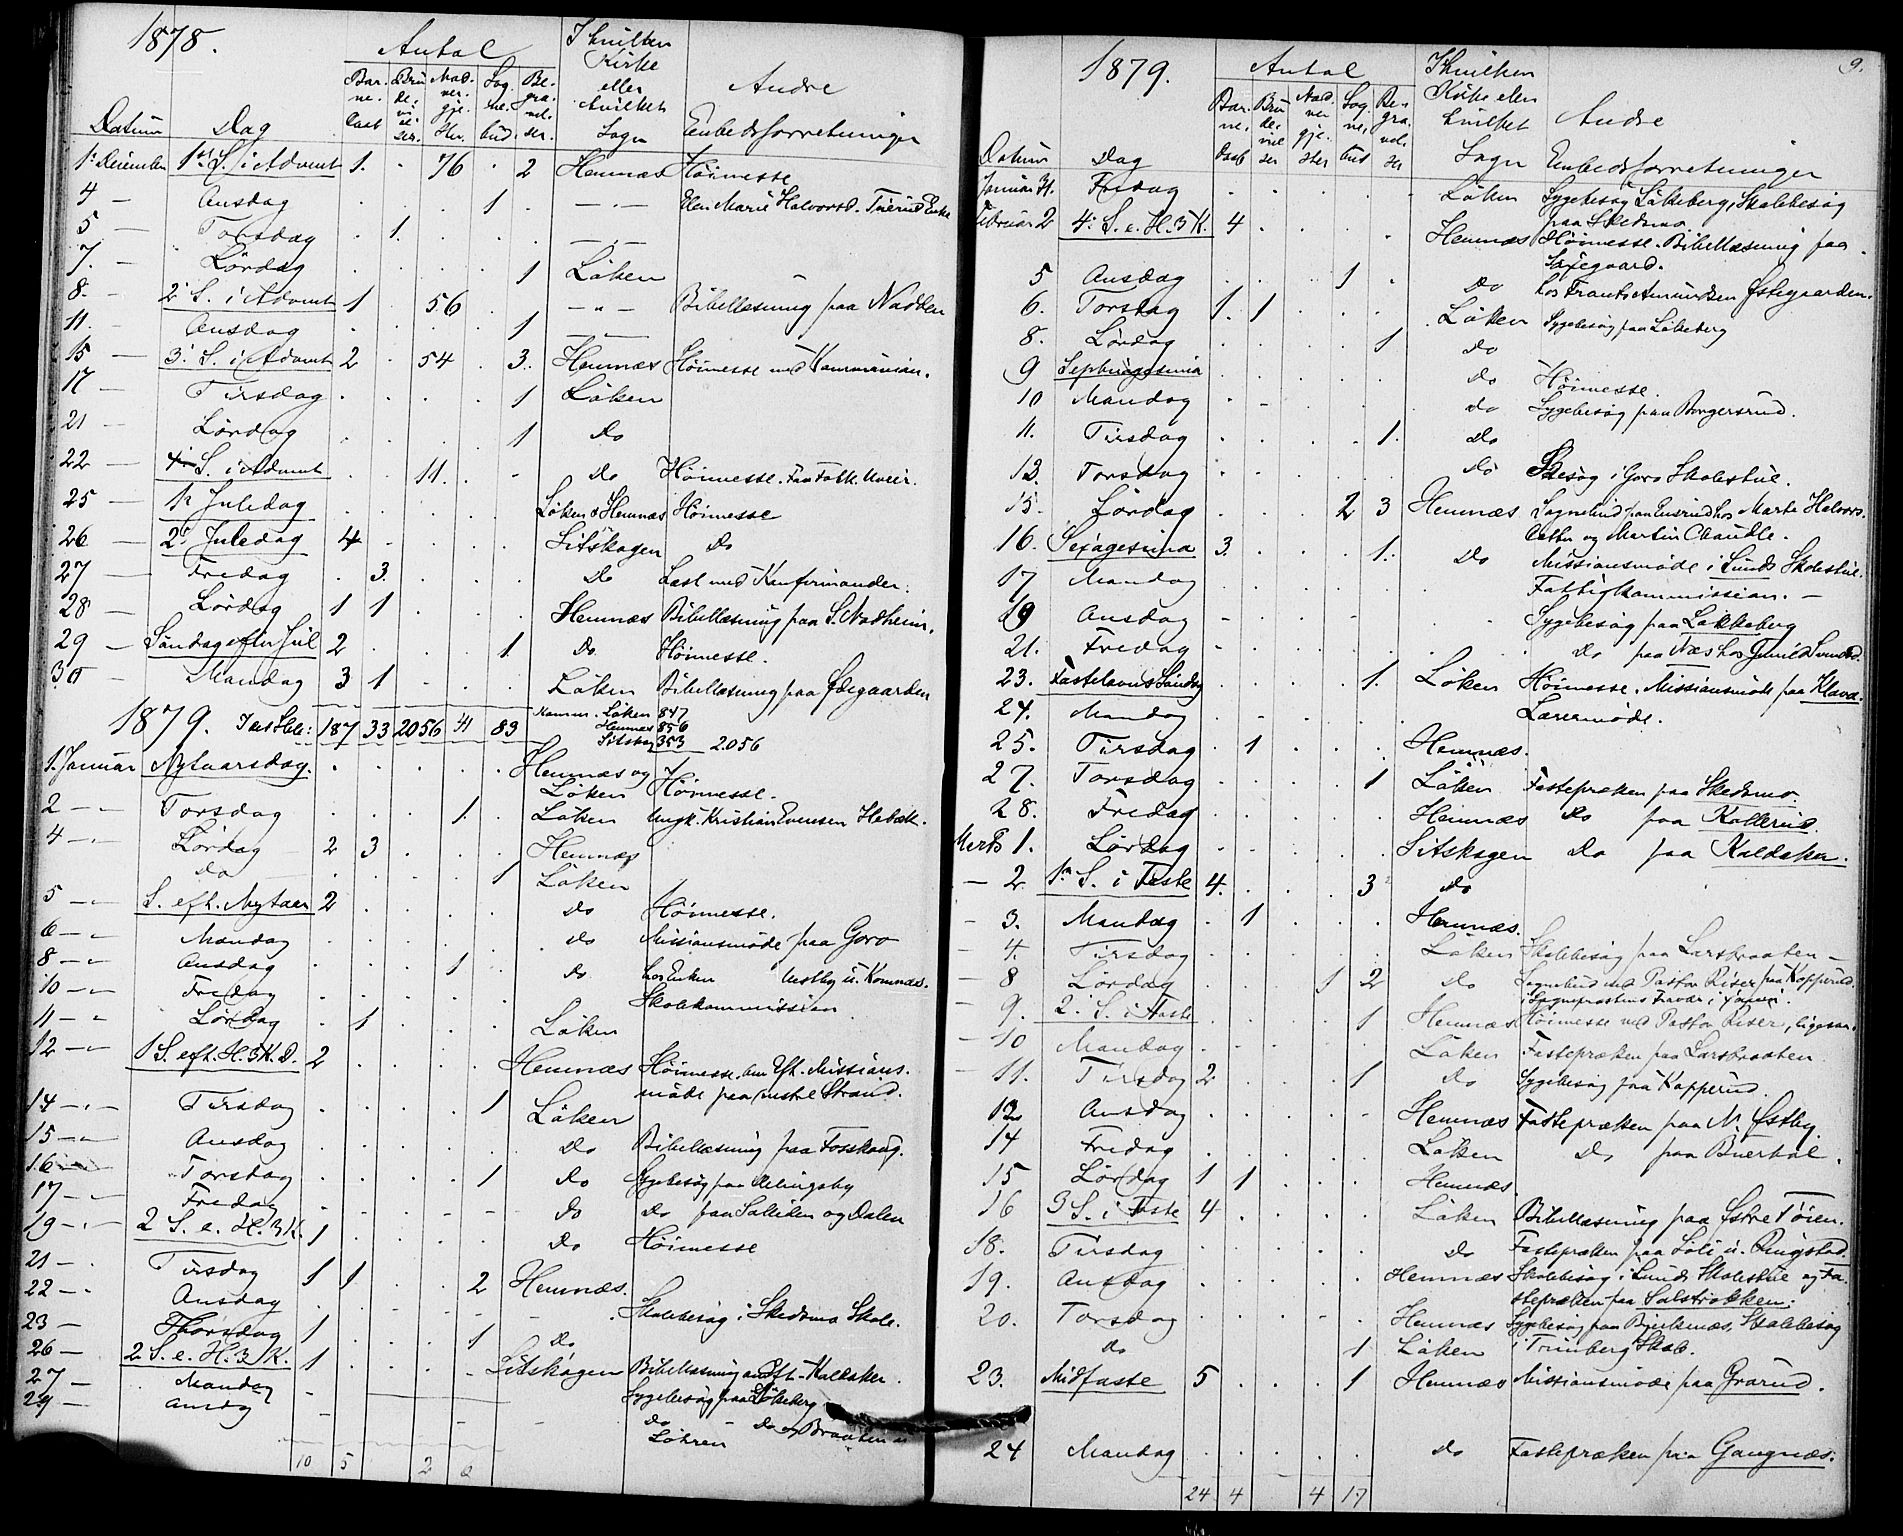 1878.
Antal
I hvilken Kirke eller hvilket Sogn
Andre Embedsforretninger
Datum Dag
1ste December 1ste S. i Advent 1. 76 2 Hemnæs Høimesse
4 — Onsdag 1 — Elen Marie Halvorsd.
5 — Torsdag 1. —
7. — Lørdag 1 Løken
8. — 2. S. i Advent 1 56 — Bibellæsning paa Nadden
11. — Onsdag 1 —
15 — 3. S. i Advent 2 54 3. Hemnæs Høimesse med Kommunion.
17 — Tirsdag 1 Løken
21 — Lørdag 1 Do
22 — 4. S. i Advent 11. Do Høimesse. Faa Folk. Uveir.
25 — 1. Juledag Løken & Hemnæs Høimesse
26 — 2. Juledag 4 Sitskogen Do
27 — Fredag 3. Do Læst med Konfirmander.
28 — Lørdag 1 1 Hemnæs Bibellæsning paa S. Nadheim.
29 — Søndag efter Jul 2 1. Do. Høimesse.
30 — Mandag 3 1 Løken Bibellæsning paa Ødegaarden
1879. 187 33 2056 41 89 Kommun. Løken 847
Hemnæs 856
Sitskog 353 2056
1. Januar Nytaarsdag. Hemnæs og Løken Høimesse.
2 — Torsdag 1. Løken Ungk. Kristian Evensen
4 — Lørdag 2 3 Hemnæs
Do 1 Løken
5 — S. eft. Nytaar 2 Do Høimesse.
6 — Mandag Do Missionsmøde paa Goro
8 — Onsdag 1 Do hos Enken
10 — Fredag Skolekommission
11 — Lørdag 1 Løken
12 — 1 S. eft. H. 3 K. D. 2 Hemnæs Høimesse. Om Eft. Missions-
møde paa Strand.
14 — Tirsdag 1 Løken
15 — Onsdag Do Bibellæsning paa Fosshaug.
16 — Torsdag 1 Do Sygebesøg paa
17 — Fredag Do Do paa og Dalen
19 — 2 S. e. H. 3 K. 1 Do Høimesse
21 — Tirsdag 1 1 2 Hemnæs.
22 — Onsdag Skolebesøg i Skedsmo Skole.
23 — Thorsdag 1 1 Do
26 — 2 S. e. H. 3 K. 1 Sitskogen Bibellæsning om Eft. Kaldaker.
27 — Mandag Sygebesøg paa Løkeberg
29 — Onsdag Do Do Braaten
Løkren
10 5 2 6
1879.
9.
Antal
I hvilken Kirke eller hvilket Sogn
Andre Embedsforretninger
Datum Dag
Januar 31. Fredag Løken Sygebesøg Løkeberg, Skolebesøg
paa Skedsmo.
Februar 2 4. S. e. H. 3 K. 4 Hemnæs Høimesse. Bibellæsning paa
5 Onsdag 1 Do hos Frants Amundsen Østegaarden.
6. Torsdag 1. 1 Løken Sygebesøg paa Løkeberg
8. Lørdag 1 Do
9 Septuagesima Do Høimesse.
10 Mandag Do Sygebesøg paa Bergersrud.
11. Tirsdag 1. Do
13. Torsdag Do Besøg i Goro Skolestue.
15. Lørdag 2 3 Hemnæs Sognebud paa hos Marte Halvors-
datter og Martin
16. Sexagesima 3. 1. Do Missionsmøde i Lunds Skolestue.
17 Mandag Fattigkommission. —
19 Onsdag Sygebesøg paa Løkkeberg
21. Fredag Do paa Næs hos
23. Fastelavns Søndag 1. Løken Høimesse. Missionsmøde paa
24. Mandag Læsermøde.
25. Tirsdag 1 Hemnæs.
27. Torsdag 1 Løken Fastepræken paa Skedsmo.
28. Fredag Hemnæs Do paa Kollerud.
Marts 1. Lørdag Sitskogen Do paa Kaldaker.
— 2. 1ste S. i Faste 4. 3 Do
— 3. Mandag 1 Hemnæs.
— 4. Tirsdag Løken Skolebesøg paa Larsbraaten —
— 8 Lørdag 1 2 Do Sognebud ved Pastor Riser paa Kopperud,
i Sognepræstens Fravær i
— 9. 2. S. i Faste 1 Hemnæs Høimesse ved Pastor Riser,
— 10 Mandag Løken Fastepræken paa Larsbraaten.
— 11. Tirsdag 2 1 Do Sygebesøg paa Kopperud
12 Onsdag Hemnæs Fastepræken paa N. Østby.
14 Fredag Løken Do paa
15 Lørdag 1 1 Hemnæs
16 3 S. i Faste 4 Løken Bibellæsning paa Østre Tøien.
18. Tirsdag Do Fastepræken paa u. Ringstad.
19. Onsdag Hemnæs Skolebesøg i Lunds Skolestue og Fa-
stepræken paa
20. Torsdag Hemnæs Sygebesøg paa Bjerknæs, Skolebesøg
Do 1 Løken i Skole.
23. Midfaste 5 1 Hemnæs Missionsmøde paa Grarud.
24 Mandag Do Fastepræken paa Gangnæs.
24 4 4 17